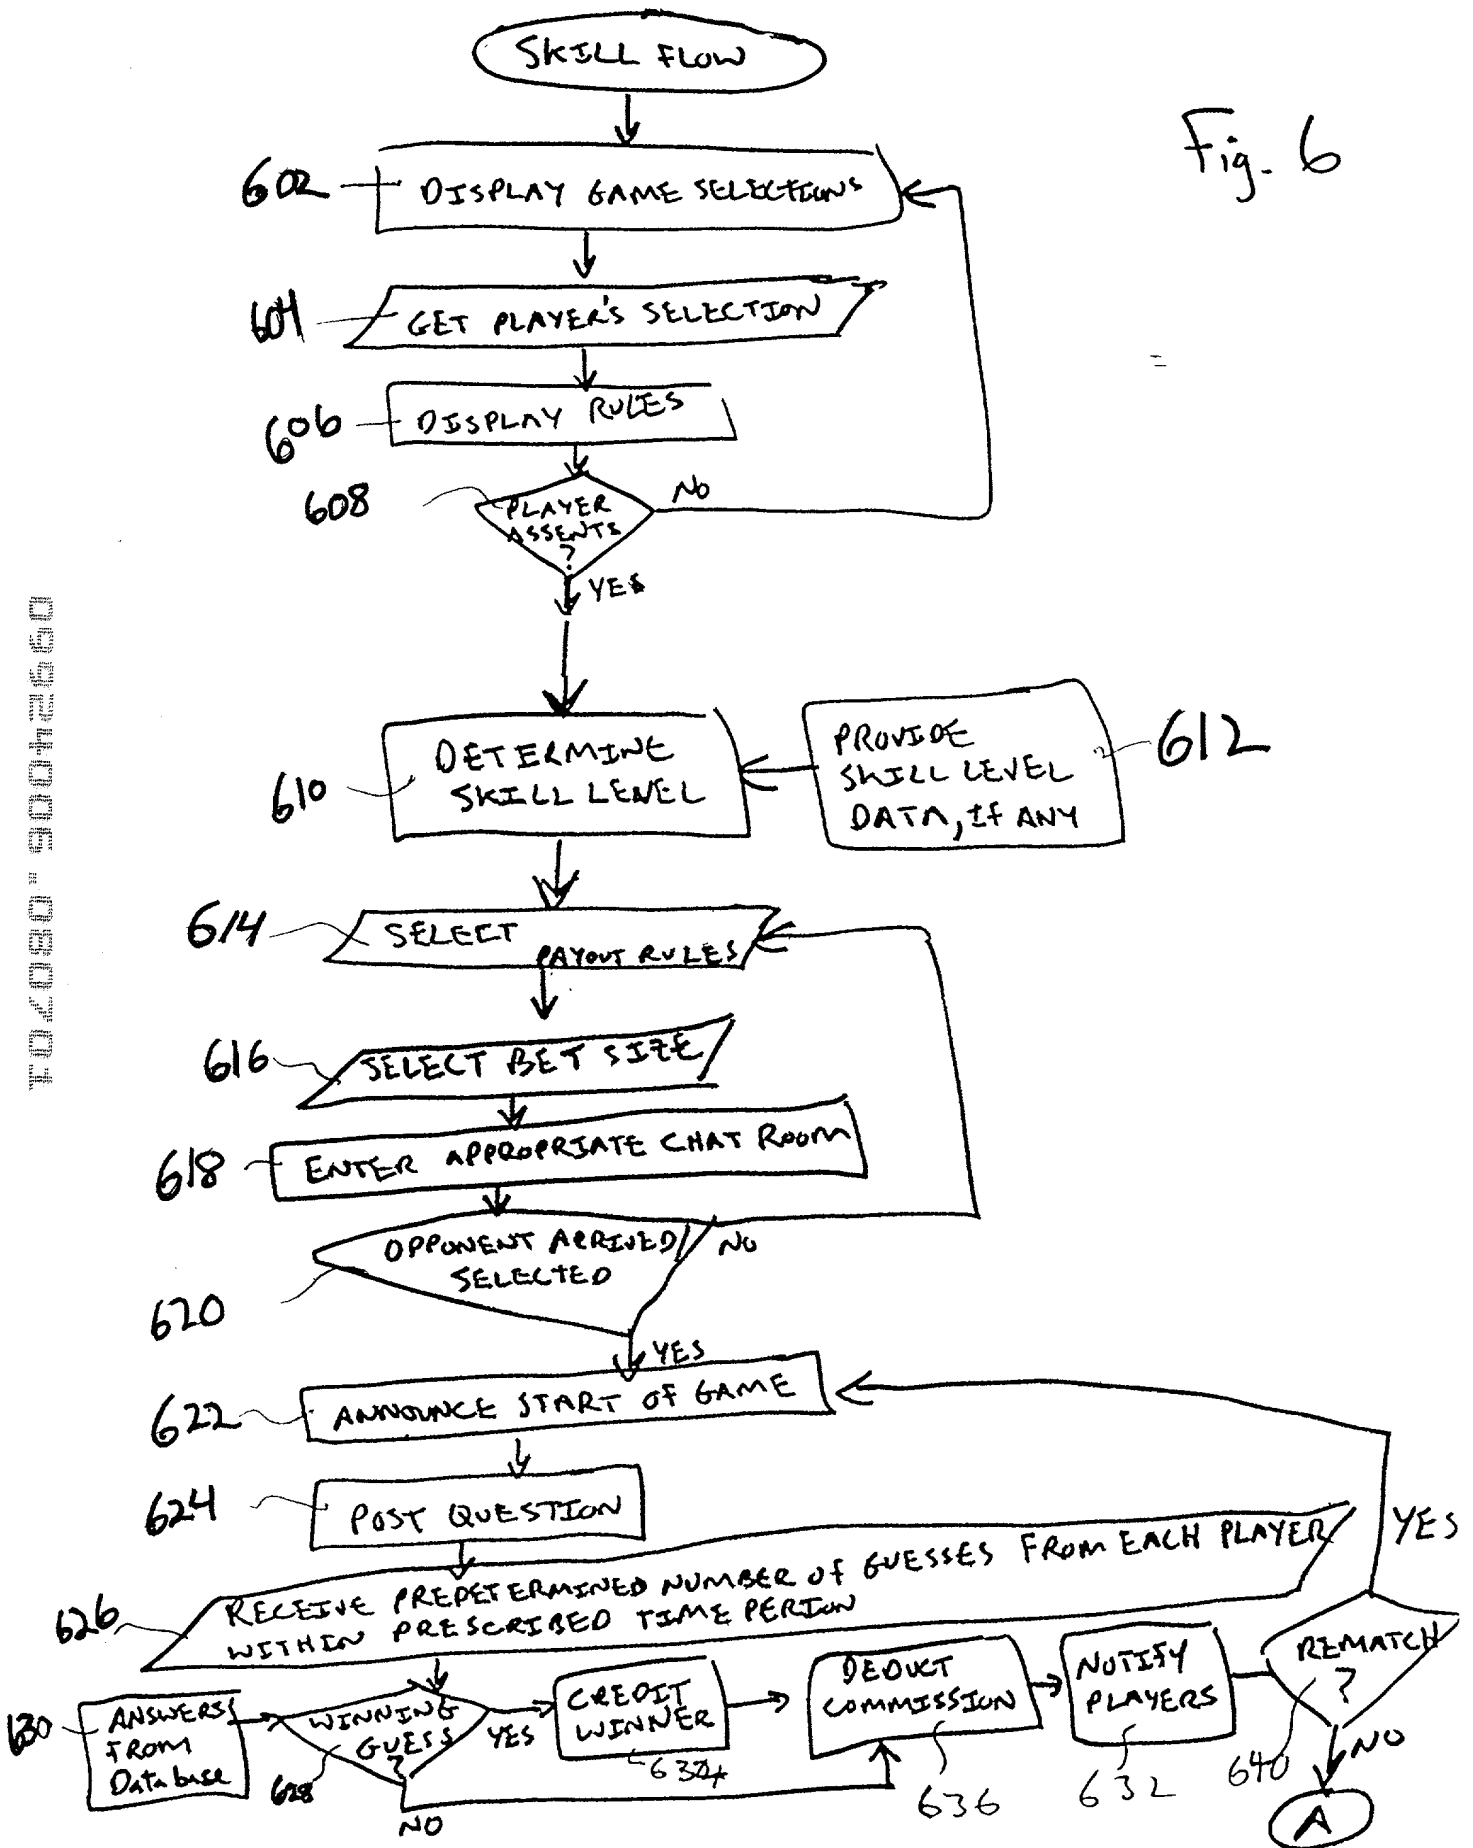 SKILL FLOW
Fig. 6
602
DISPLAY GAME SELECTIONS
604
GET PLAYER'S SELECTION
606
DISPLAY RULES
608
PLAYER
ASSENTS
?
NO
YES
610
DETERMINE
SKILL LEVEL
PROVIDE
SKILL LEVEL
DATA, IF ANY
612
614
SELECT
PAYOUT RULES
616
SELECT BET SIZE
618
ENTER APPROPRIATE CHAT ROOM
620
OPPONENT ARRIVED/
SELECTED
NO
YES
622
ANNOUNCE START OF GAME
624
POST QUESTION
626
RECEIVE PREDETERMINED NUMBER OF GUESSES FROM EACH PLAYER
WITHIN PRESCRIBED TIME PERIOD
YES
630
ANSWERS
FROM
Database
WINNING
GUESS
?
628
YES
NO
CREDIT
WINNER
634
DEDUCT
COMMISSION
636
NOTIFY
PLAYERS
632
REMATCH
?
640
NO
A
09924006.080701